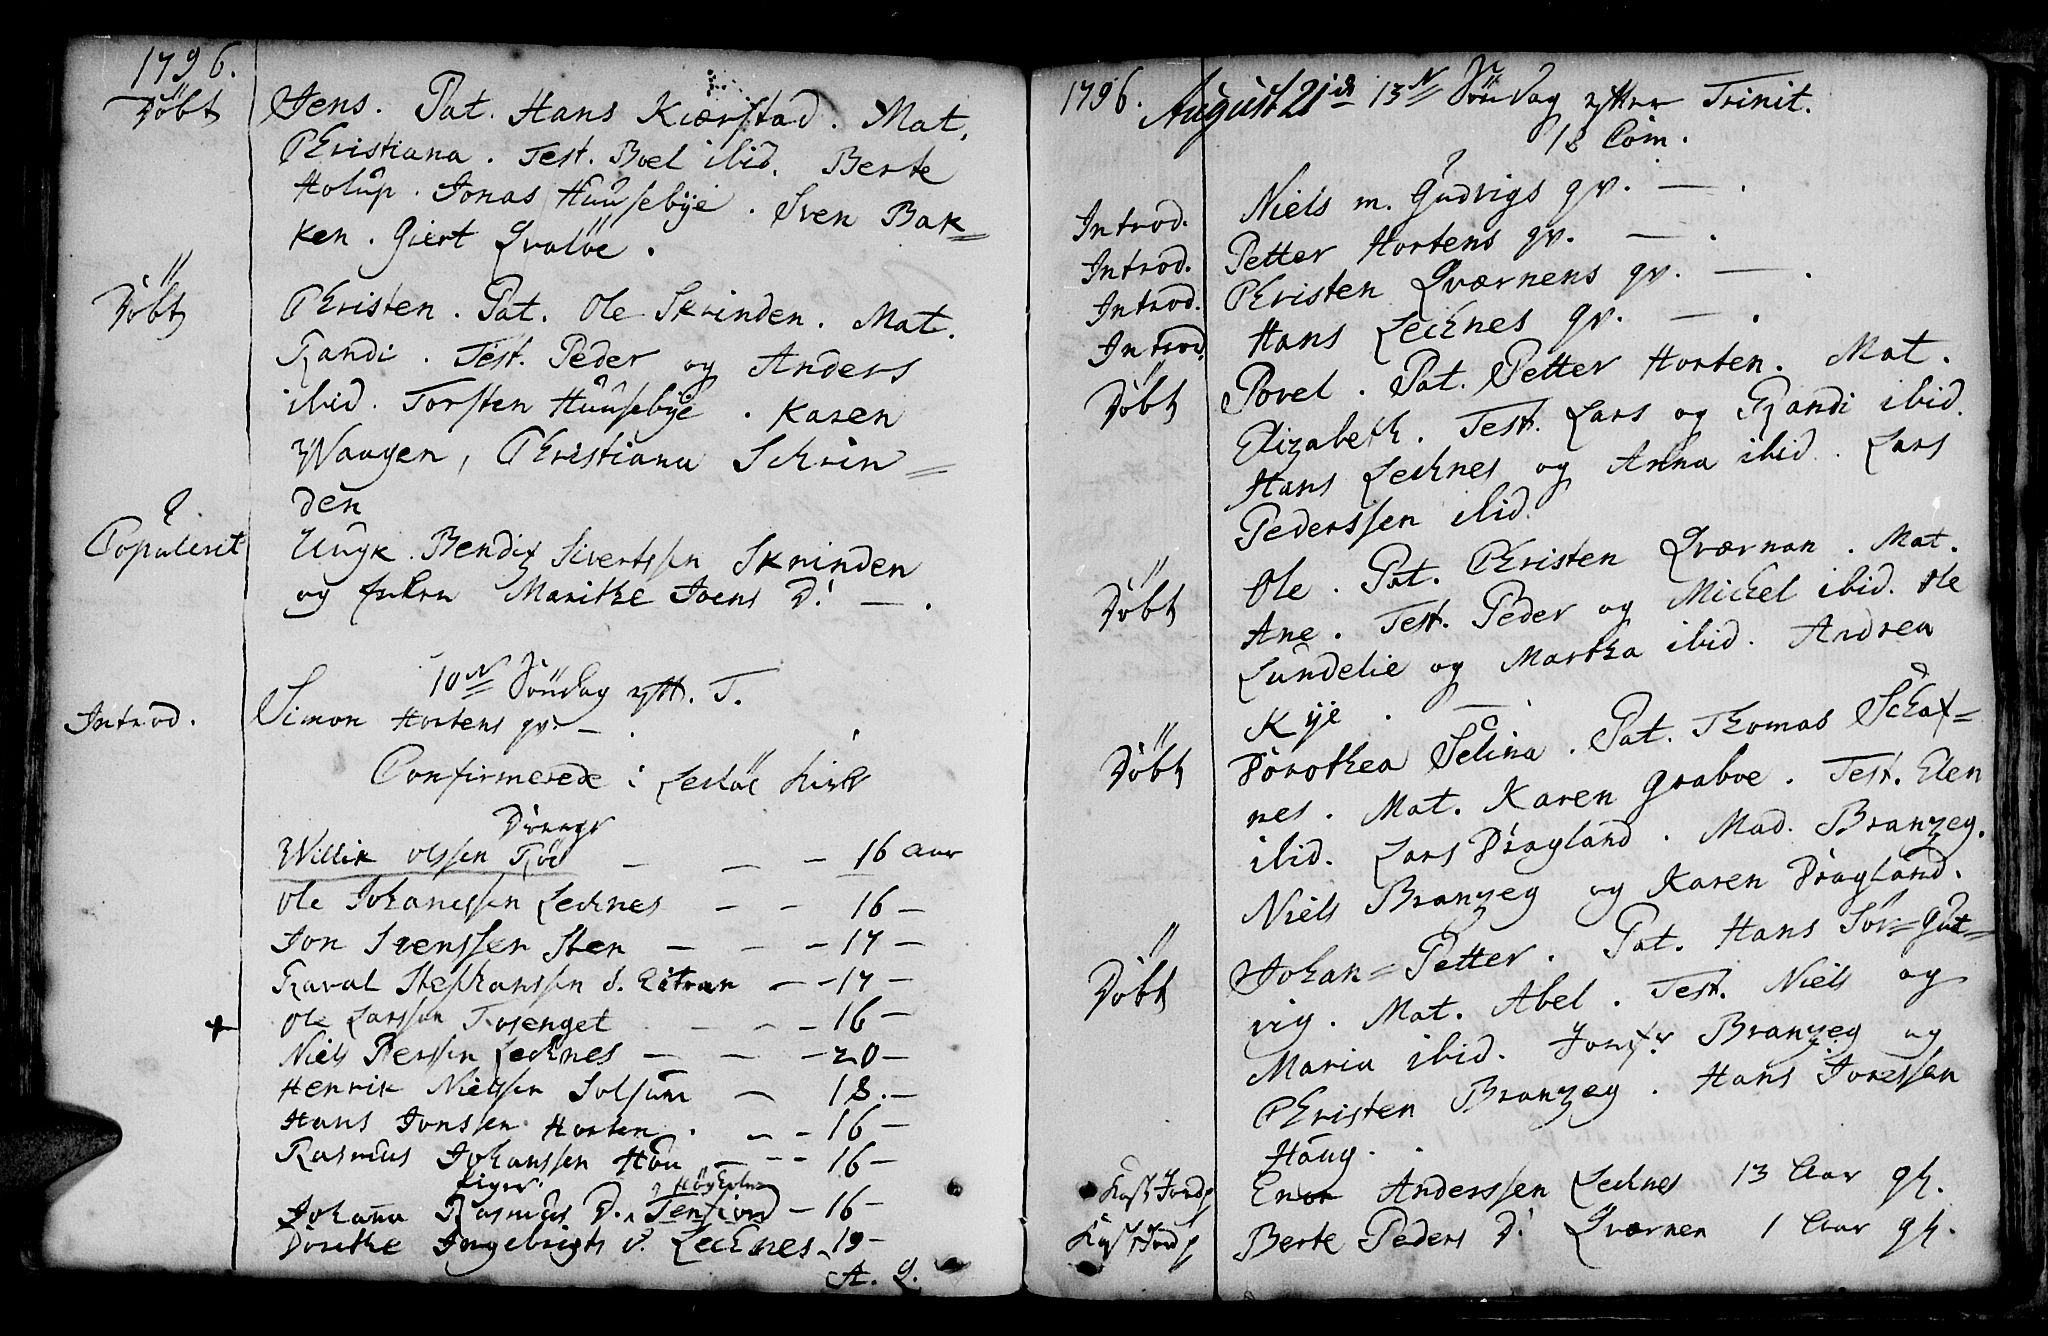 1796.
Döbt Jens. Pat. Hans Kiærstad. Mat.
Christiana. Test. Boel ibid. Berte
Holup. Jonas Huusebÿe. Sven Bak=
ken. Giert Qvalöe.
Döbt Christen. Pat. Ole Skrinden. Mat.
Randi. Test. Peder og Anders
ibid. Torsten Huusebÿe. Karen
Waagen, Christiana Schrin=
den
Copulerit Ungk. Bendix Sivertssen Skrinden
og Enken Marithe Joens D: —.
10de Söndag eft. T.
Introd. Simon Hortens qv. —.
Confirmerede i Leslöe Kirke
Drenge
Willik Olssen Röe — — — 16 Aar
Ole Johanessen Lecknes — — 16 —
Jon Svenssen Sten — — — 17 —
Raval Stephanssen S. Eitran — — 17 —
Ole Larssen Rosenget — — — 16 —
Niels Perssen Lecknes — — — 20 —
Henrik Nielssen Solsum — 18. —
Hans Jonssen Horten. — — 16 —
Rasmus Johanssen Hou — — — 16 —
Piger.
Johanna Rasmus D. Tensiord — 16 —
Dorethe Ingebrigts D. Lecknes — 19 —
1796. August 21de 13de Söndag efter Trinit.
18 Com.
Introd. Niels m. Gudvigs qv. — .
Introd. Petter Hortens qv. — .
Introd. Christen Qværnens qv. — .
Introd. Hans Lecknes qv. — .
Döbt Povel. Pat. Petter Horten. Mat.
Elizabeth. Test. Lars og Randi ibid.
Hans Lecknes og Anna ibid. Lars
Pederssen ibid.
Döbt Ole. Pat. Christen Qværnan. Mat.
Ane. Test. Peder og Michel ibid. Ole
Lundelie og Martha ibid. Andrea
Kÿe. —.
Döbt Dorothea Selina. Pat. Thomas Schat=
nes. Mat. Karen Graboe. Test. Elen
ibid. Lars Dragland. Mad. Branzeg.
Niels Branzeg og Karen Dragland.
Döbt Johan=Petter. Pat. Hans Sör=Gut=
vig. Mat. Abel. Test. Niels og
Maria ibid. Jomfr Branzeg og
Christen Branzeg. Hans Joressen
Haug.
Anderssen Lecknes 13 Aar gl.
Berte Peders D: Qværnen 1 Aar gl.